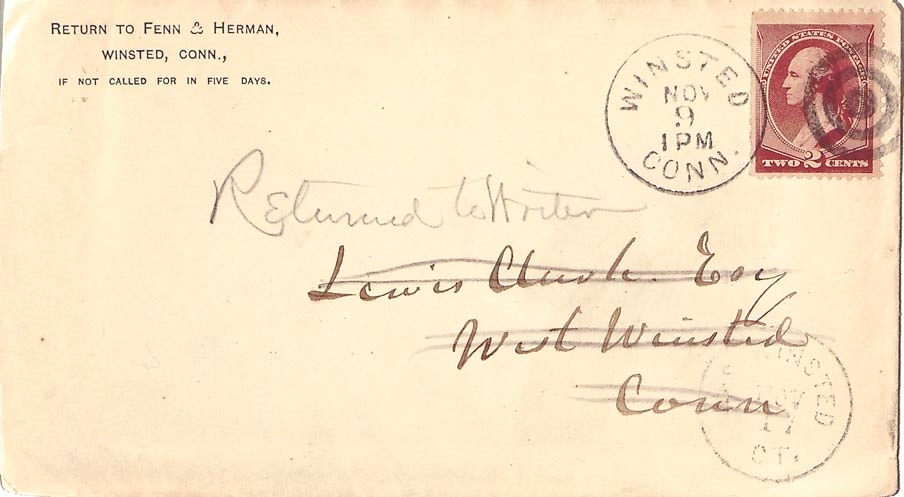 RETURN TO FENN & HERMAN,
WINSTED, CONN.,
IF NOT CALLED FOR IN FIVE DAYS.
WINSTED
NOV
9
1 PM
CONN.
UNITED STATES POSTAGE
TWO 2 CENTS
Returned to Writer
Lewis Clark. Esq
West Winsted
Conn
WINSTED
NOV
17
CT.